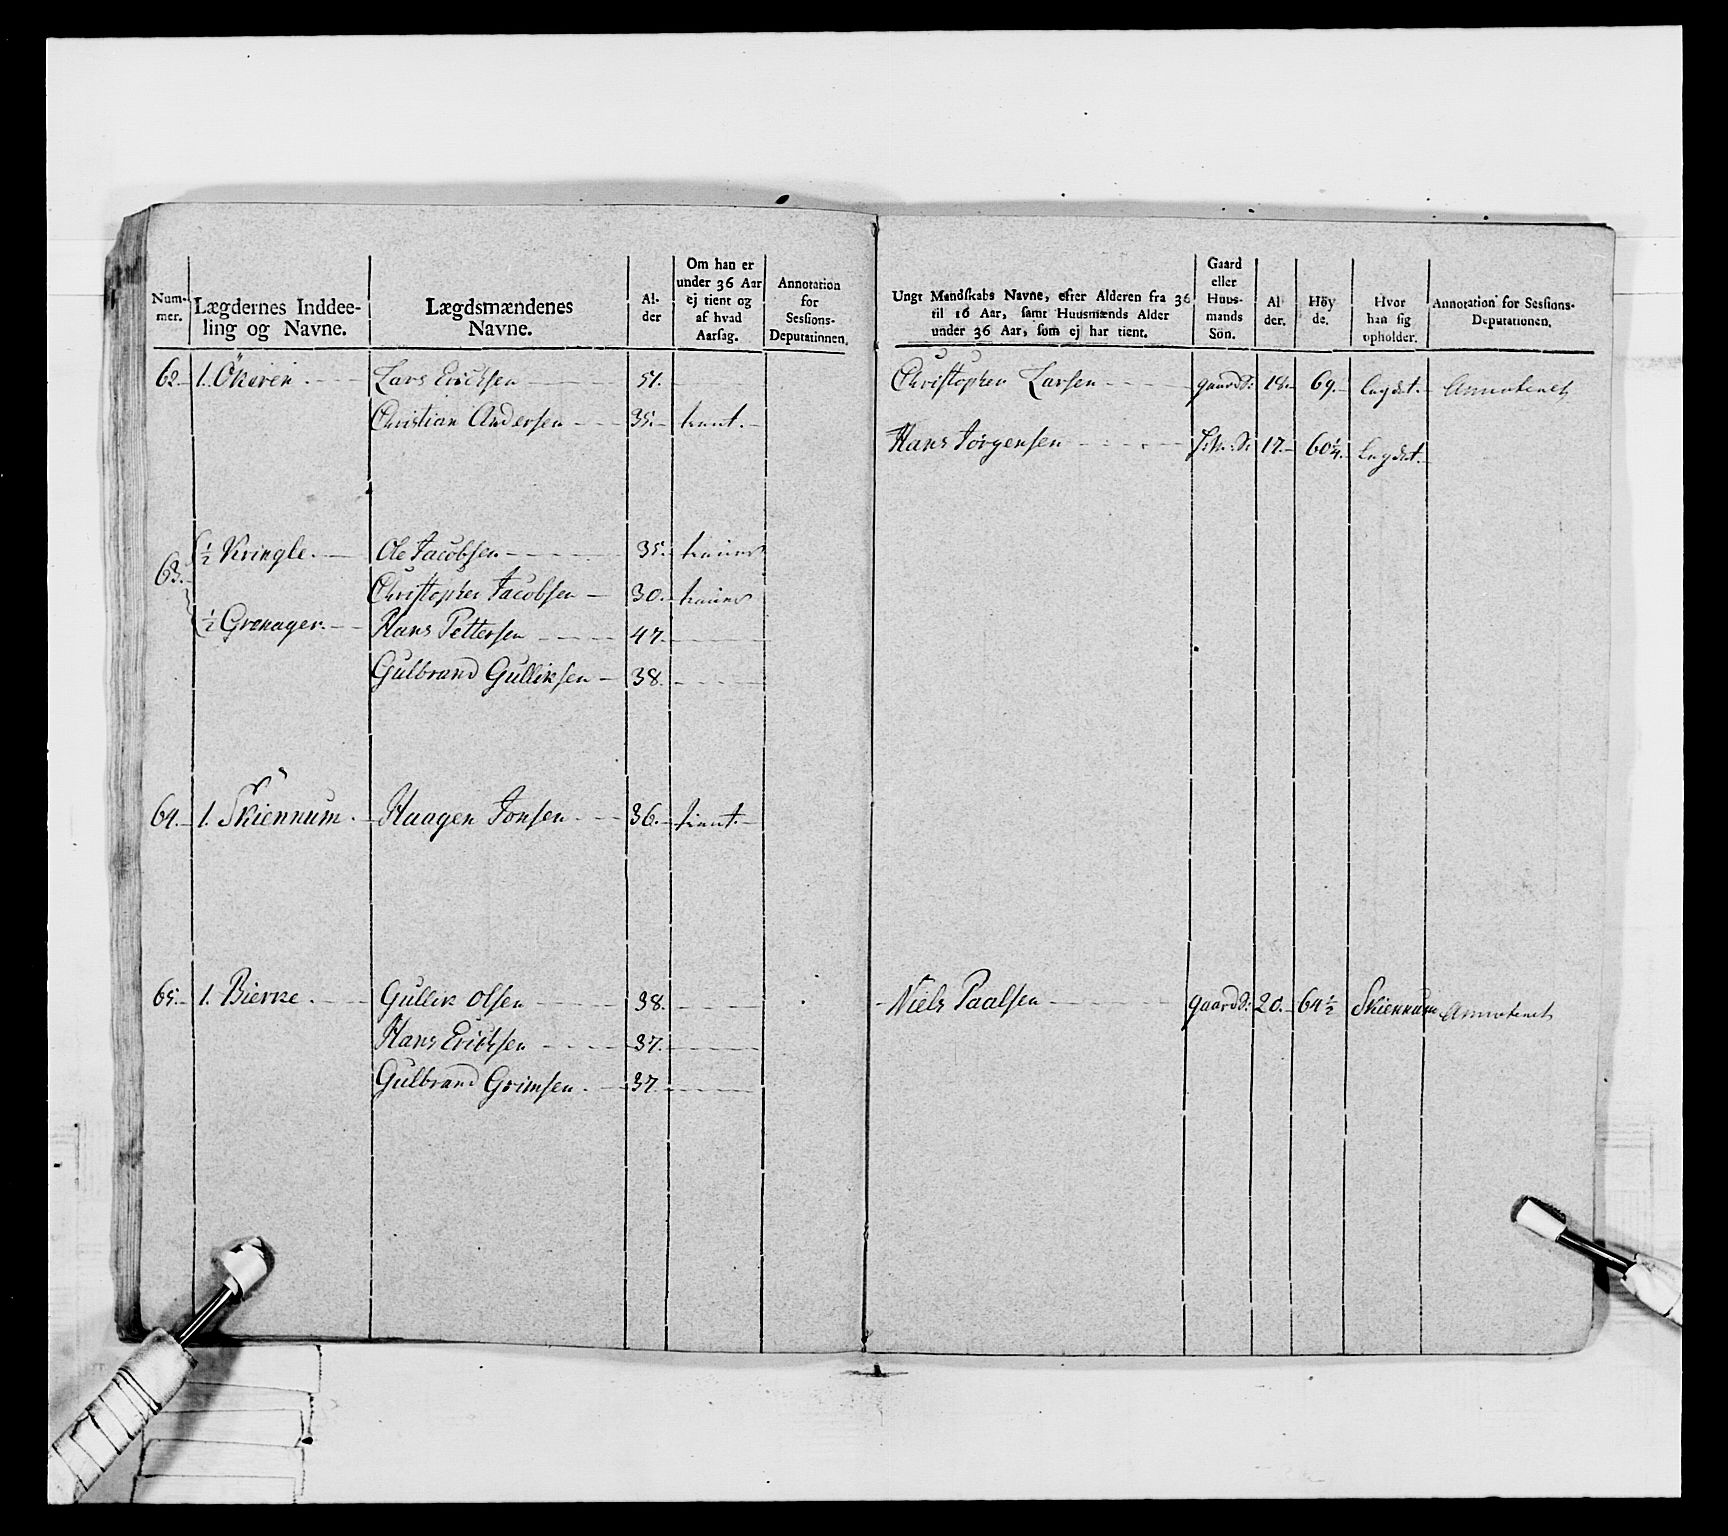 Num-
mer.
Lægdernes Inddee-
ling og Navne.
Lægdsmændenes
Navne.
Al-
der
Om han er
under 36 Aar
ej tient og
af hvad
Aarsag.
Annotation
for
Sessions-
Deputationen.
62. 1. Økeren. Lars Ericksen 51.
Christian Andersen 35. tient.
63. ½ Kringle. Ole Jacobsen 35.
Christopher Jacobsen 30.
½ Grønager. Hans Pettersen 47.
Gulbrand Gulliksen 38.
64. 1. Skiennum. Haagen Jonsen 36. tient.
65. 1. Bierke. Gullik Olsen 38.
Hans Ericksen 37.
Gulbrand Grimsen. 37.
Ungt Mandskabs Navne, efter Alderen fra 36
til 16 Aar, samt Huusmænds Alder
under 36 Aar, som ej har tient.
Gaard
eller
Huus-
mands
Søn.
Al-
der.
Höy
de.
Hvor
han sig
opholder.
Annotation for Sessions-
Deputationen.
Christopher Larsen gaard S: 18. 69. Lægdet. Annoteret
Hans Jørgensen 17. 60¼. Lægdet.
Niels Paalsen gaard S: 20. 64½ Skiennum Annoteret